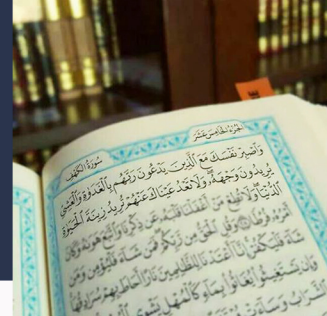 سُورَةُ الكَهْفِ الجُزْءُ الخَامِسَ عَشَرَ
وَاصْبِرْ نَفْسَكَ مَعَ الَّذِينَ يَدْعُونَ رَبَّهُم بِالْغَدَوٰةِ وَالْعَشِيِّ
يُرِيدُونَ وَجْهَهُ وَلَا تَعْدُ عَيْنَاكَ عَنْهُمْ تُرِيدُ زِينَةَ الْحَيَوٰةِ
الدُّنْيَا وَلَا تُطِعْ مَنْ أَغْفَلْنَا قَلْبَهُ عَن ذِكْرِنَا وَاتَّبَعَ هَوَىٰهُ وَكَانَ
أَمْرُهُ فُرُطًا وَقُلِ الْحَقُّ مِن رَّبِّكُمْ فَمَن شَاءَ فَلْيُؤْمِن وَمَن
شَاءَ فَلْيَكْفُرْ إِنَّا أَعْتَدْنَا لِلظَّالِمِينَ نَارًا أَحَاطَ بِهِمْ سُرَادِقُهَا
وَإِن يَسْتَغِيثُوا يُغَاثُوا بِمَاءٍ كَالْمُهْلِ يَشْوِي
الشَّرَابُ وَسَاءَتْ